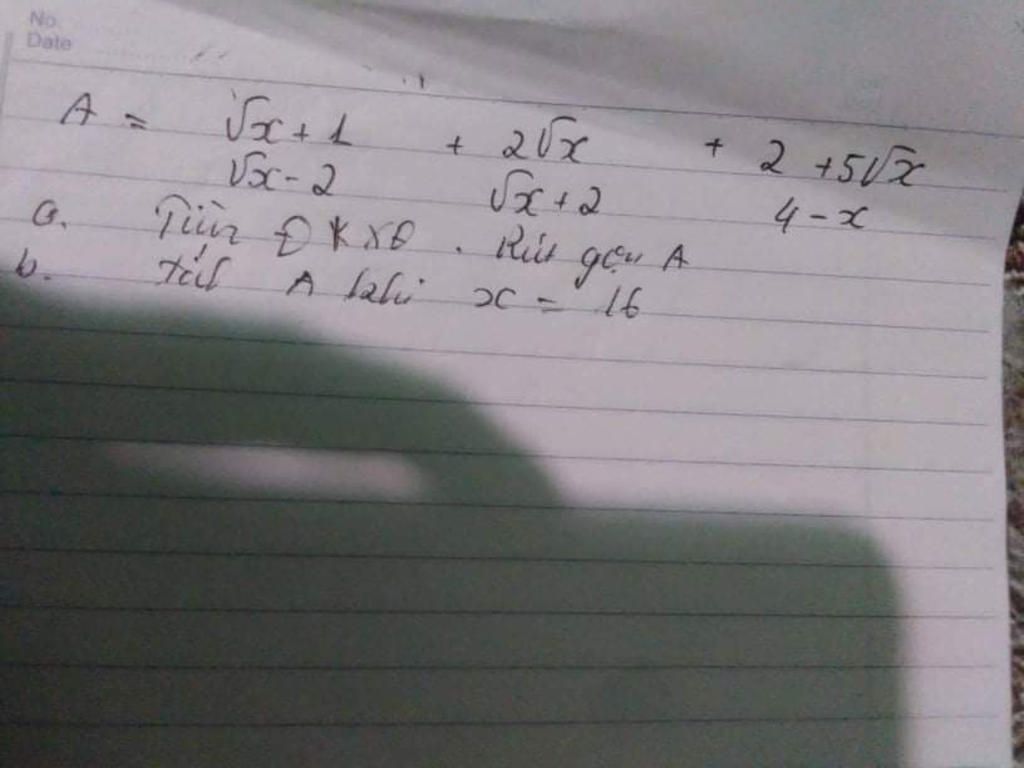 No.
Date
A = √x + 1 + 2√x + 2 + 5√x
√x - 2 √x + 2 4 - x
a. Tìm ĐKXĐ. Rút gọn A
b. tính A khi x = 16